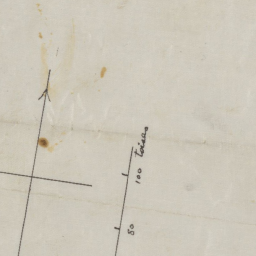 100 toises
50